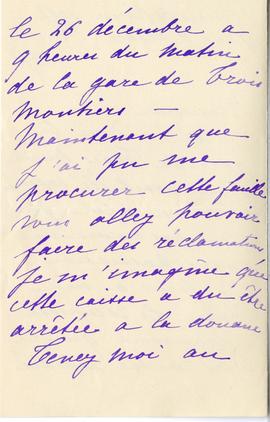 le 26 décembre a
9 heures du matin
de la gare de Trois
Moutiers —
Maintenant que
j'ai pu me
procurer cette feuille
vous allez pouvoir
faire des réclamations
Je m'imagine que
cette caisse a du être
arrêtée a la douane
Tenez moi au